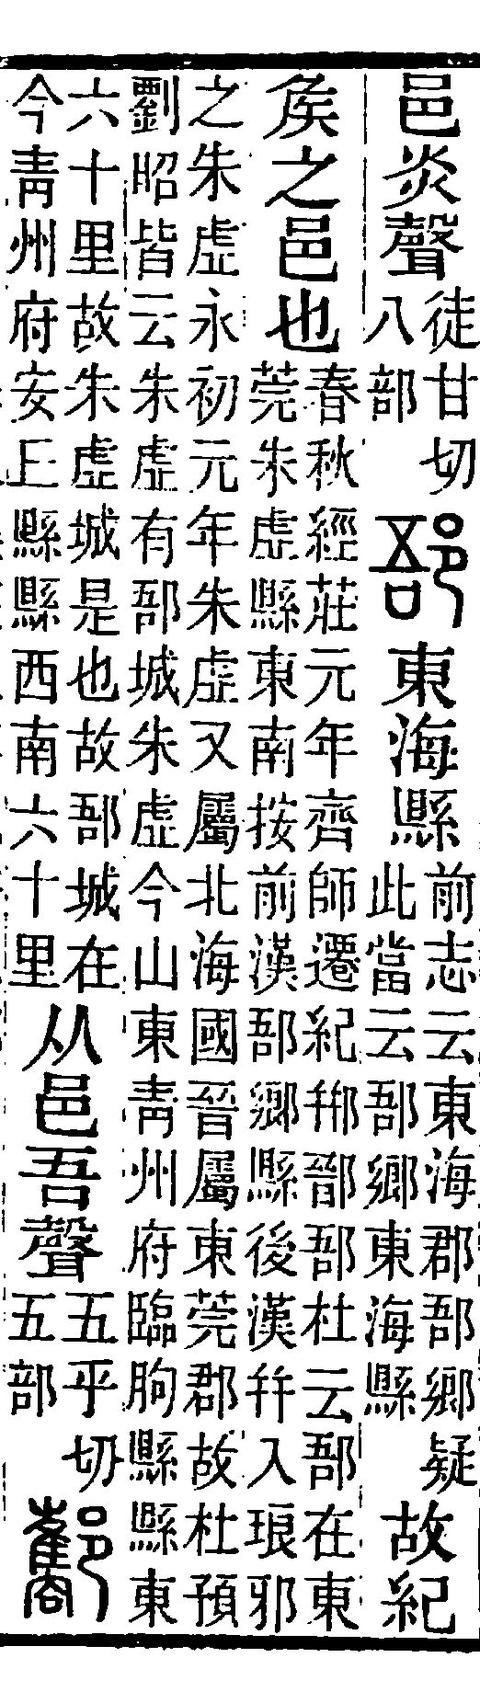 邑炎聲徒甘切八部郚東海縣前志云東海郡郚鄉疑此當云郚鄉東海縣故紀
矦之邑也春秋經莊元年齊師遷紀郱鄑郚杜云郚在東莞朱虛縣東南按前漢郚鄉縣後漢幷入琅邪
之朱虛永初元年朱虛又屬北海國晉屬東莞郡故杜預劉昭皆云朱虛有郚城朱虛今山東靑州府臨朐縣縣東
六十里故朱虛城是也故郚城在今靑州府安丘縣縣西南六十里从邑吾聲五乎切五部酅